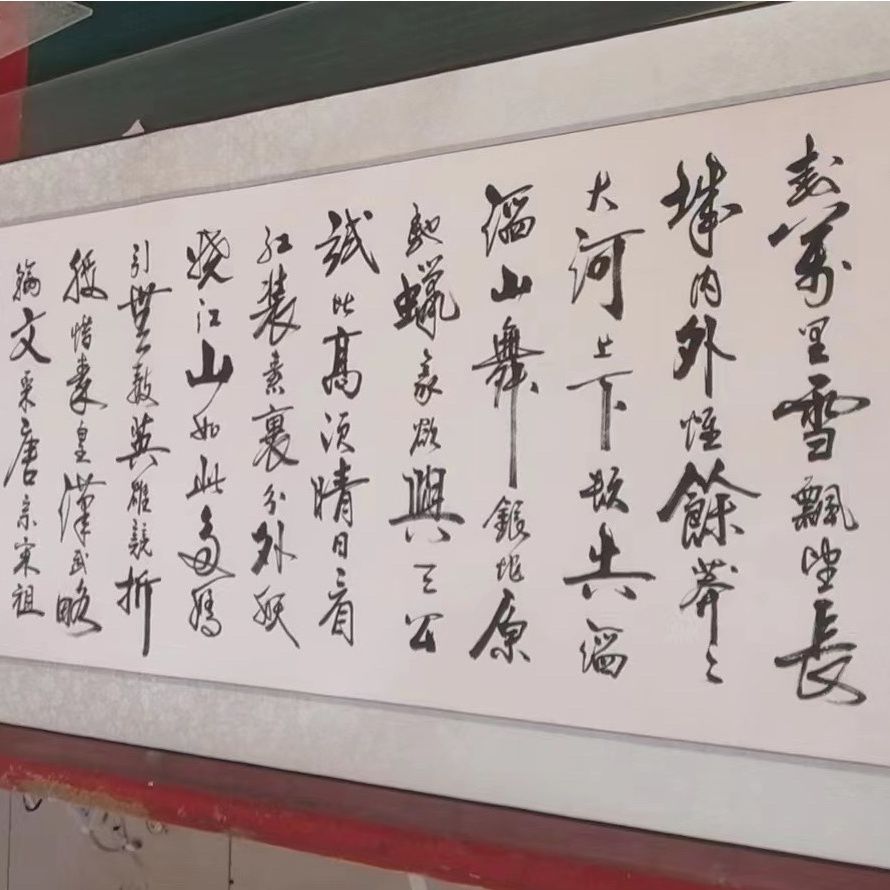 封萬里雪飄望長
城内外惟餘莽〻
大河上下頓失滔
滔山舞銀蛇原
馳蠟象欲與天公
試比高須晴日看
红装素裹分外妖
嬈江山如此多嬌
引無數英雄競折
腰惜秦皇漢武略
輸文采唐宗宋祖